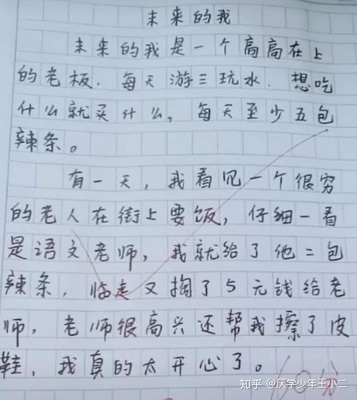 未来的我
未来的我是一个高高在上
的老板．每天游三玩水．想吃
什么就买什么，每天至少五包
辣条。
有一天，我看见一个很穷
的老人在街上要饭，仔细一看
是语文老师，我就给了他二包
辣条．临走又掏了5元钱给老
师，老师很高兴还帮我擦了皮
鞋，我真的太开心了。
知乎 @厌学少年王小二